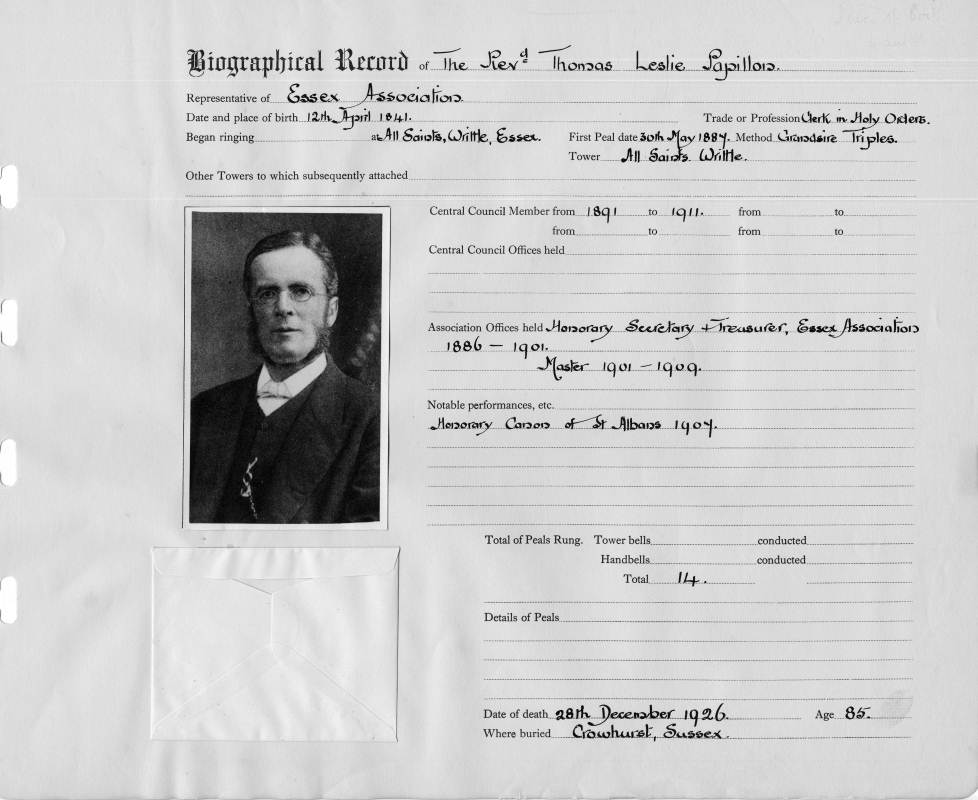 Biographical Record of The Revd Thomas Leslie Papillon.
Representative of Essex Association
Date and place of birth 12th April 1841. Trade or Profession Clerk in Holy Orders.
Began ringing at All Saints, Writtle, Essex. First Peal date 30th May 1887. Method Grandsire Triples.
Tower All Saints Writtle.
Other Towers to which subsequently attached
Central Council Member from 1891 to 1911. from to
from to from to
Central Council Offices held
Association Offices held Honorary Secretary + Treasurer, Essex Association
1886 – 1901.
Master 1901 – 1909.
Notable performances, etc.
Honorary Canon of St Albans 1907.
Total of Peals Rung. Tower bells conducted
Handbells conducted
Total 14.
Details of Peals
Date of death 28th December 1926. Age 85.
Where buried Crowhurst, Sussex.